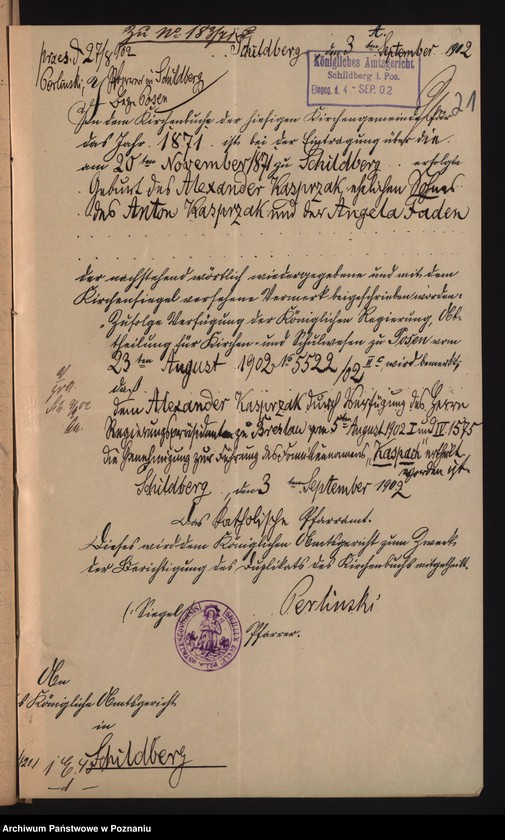 Zu No 183/71
praes. d. 27/8 902
Perlinski, Pfarrer in Schildberg
Bez. Posen
Schildberg, den 3ten September 1902
Königliches Amtsgericht
Schildberg i. Pos.
Eingeg. d. 4 - SEP. 02
21
In dem Kirchenbuche der hiesigen Kirchengemeinde für
das Jahr 1871 ist bei der Eintragung über die
am 20ten November 1871 zu Schildberg erfolgte
Geburt des Alexander Kasprzak, ehelichen Sohnes
des Anton Kasprzak und der Angela Faden
der nachstehend wörtlich wiedergegebene und mit dem
Kirchensiegel versehene Vermerk beigeschrieben worden:
"Zufolge Verfügung der Königlichen Regierung, Ab-
theilung für Kirchen- und Schulwesen zu Posen vom
23ten August 1902 No 5522/02 II c wird bemerkt,
daß
dem Alexander Kasprzak durch Verfügung des Herrn
Regierungspräsidenten zu Breslau vom 5ten August 1902 I und IV 1575
die Genehmigung zur Führung des Familiennamens "Kaspach" ertheilt
worden ist
Schildberg, den 3ten September 1902
Das Katholische Pfarramt.
Dieses wird dem Königlichen Amtsgericht zum Zweck
der Berichtigung des Duplikats des Kirchenbuchs mitgetheilt.
(Siegel)
Perlinski
Pfarrer.
An
das Königliche Amtsgericht
in
Schildberg
Archiwum Państwowe w Poznaniu